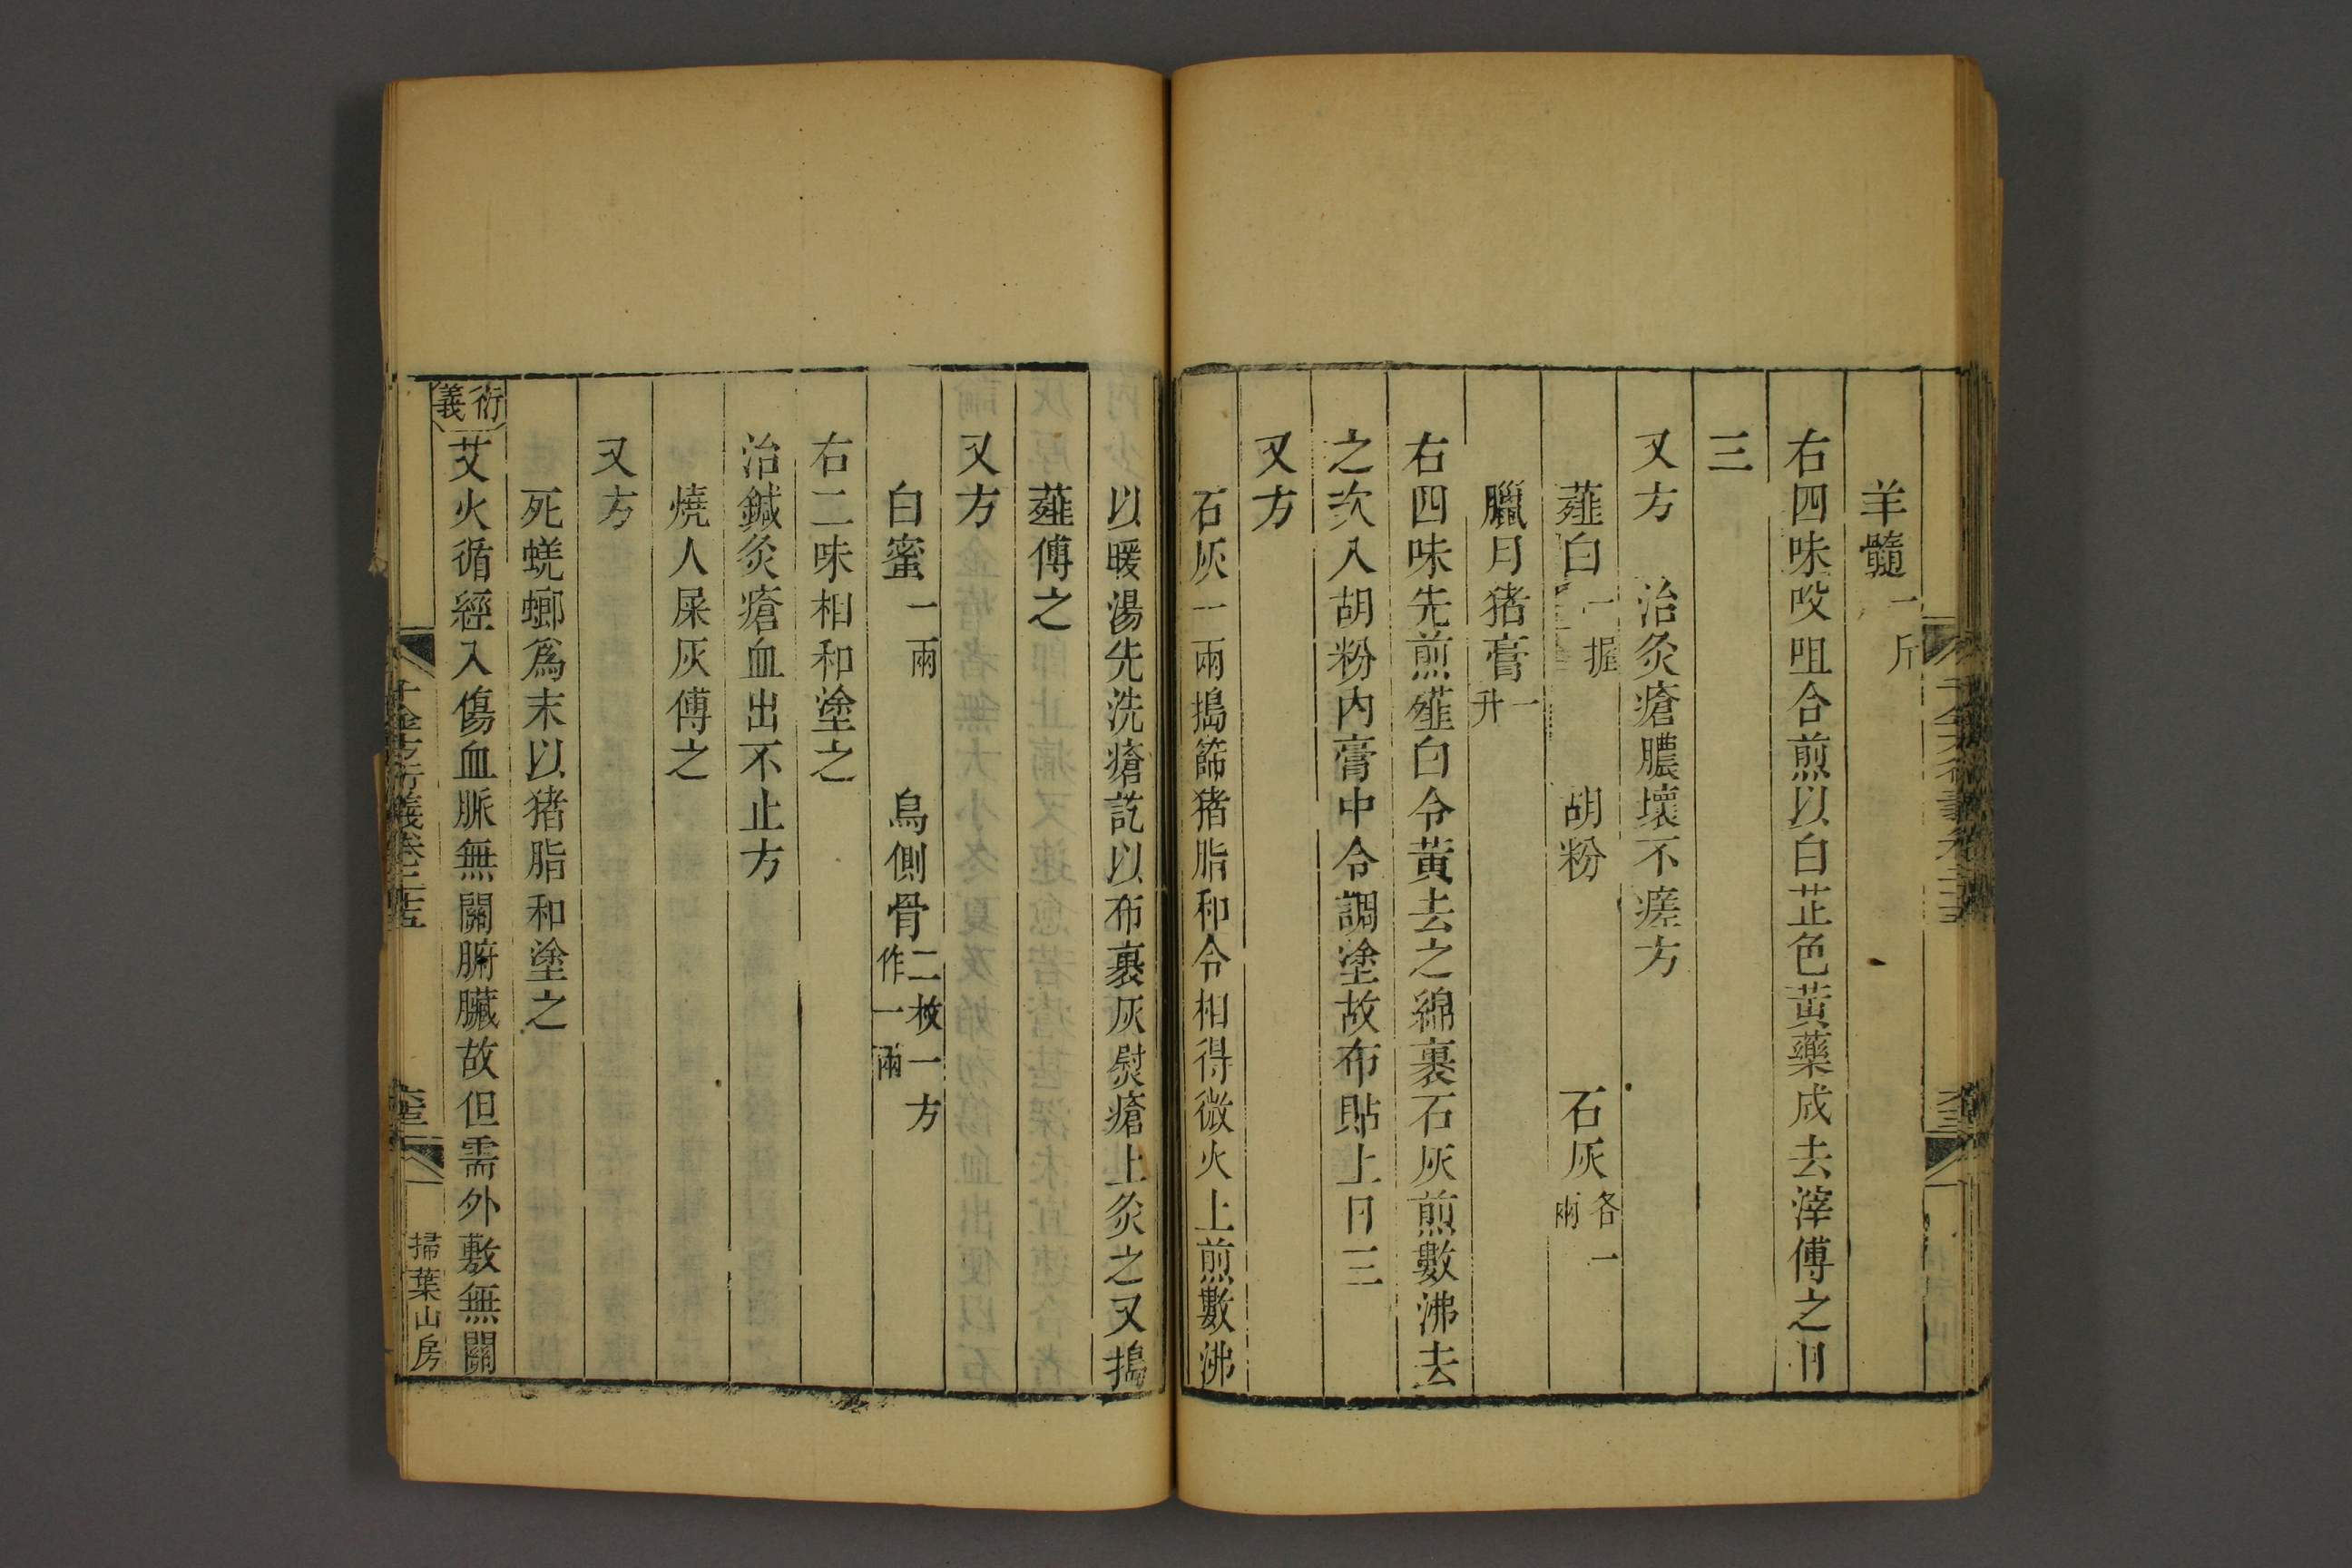 羊髓一斤
右四味㕮咀合煎以白芷色黃藥成去滓傅之日
三
又方　治灸瘡膿壞不瘥方
薤白一握　胡粉　石灰各一兩
臘月猪膏一升
右四味先煎薤白令黃去之綿裹石灰煎數沸去
之次入胡粉內膏中令調塗故布貼上日三
又方
石灰一兩搗篩猪脂和令相得微火上煎數沸
以暖湯先洗瘡訖以布裹灰熨瘡上灸之又搗
薤傅之
又方
白蜜一兩　烏側骨二枚一方作一兩
右二味相和塗之
治鍼灸瘡血出不止方
燒人屎灰傅之
又方
死蜣螂爲末以猪脂和塗之
衍義 艾火循經入傷血脈無關腑臟故但需外敷無關
千金方衍義卷二十五
掃葉山房